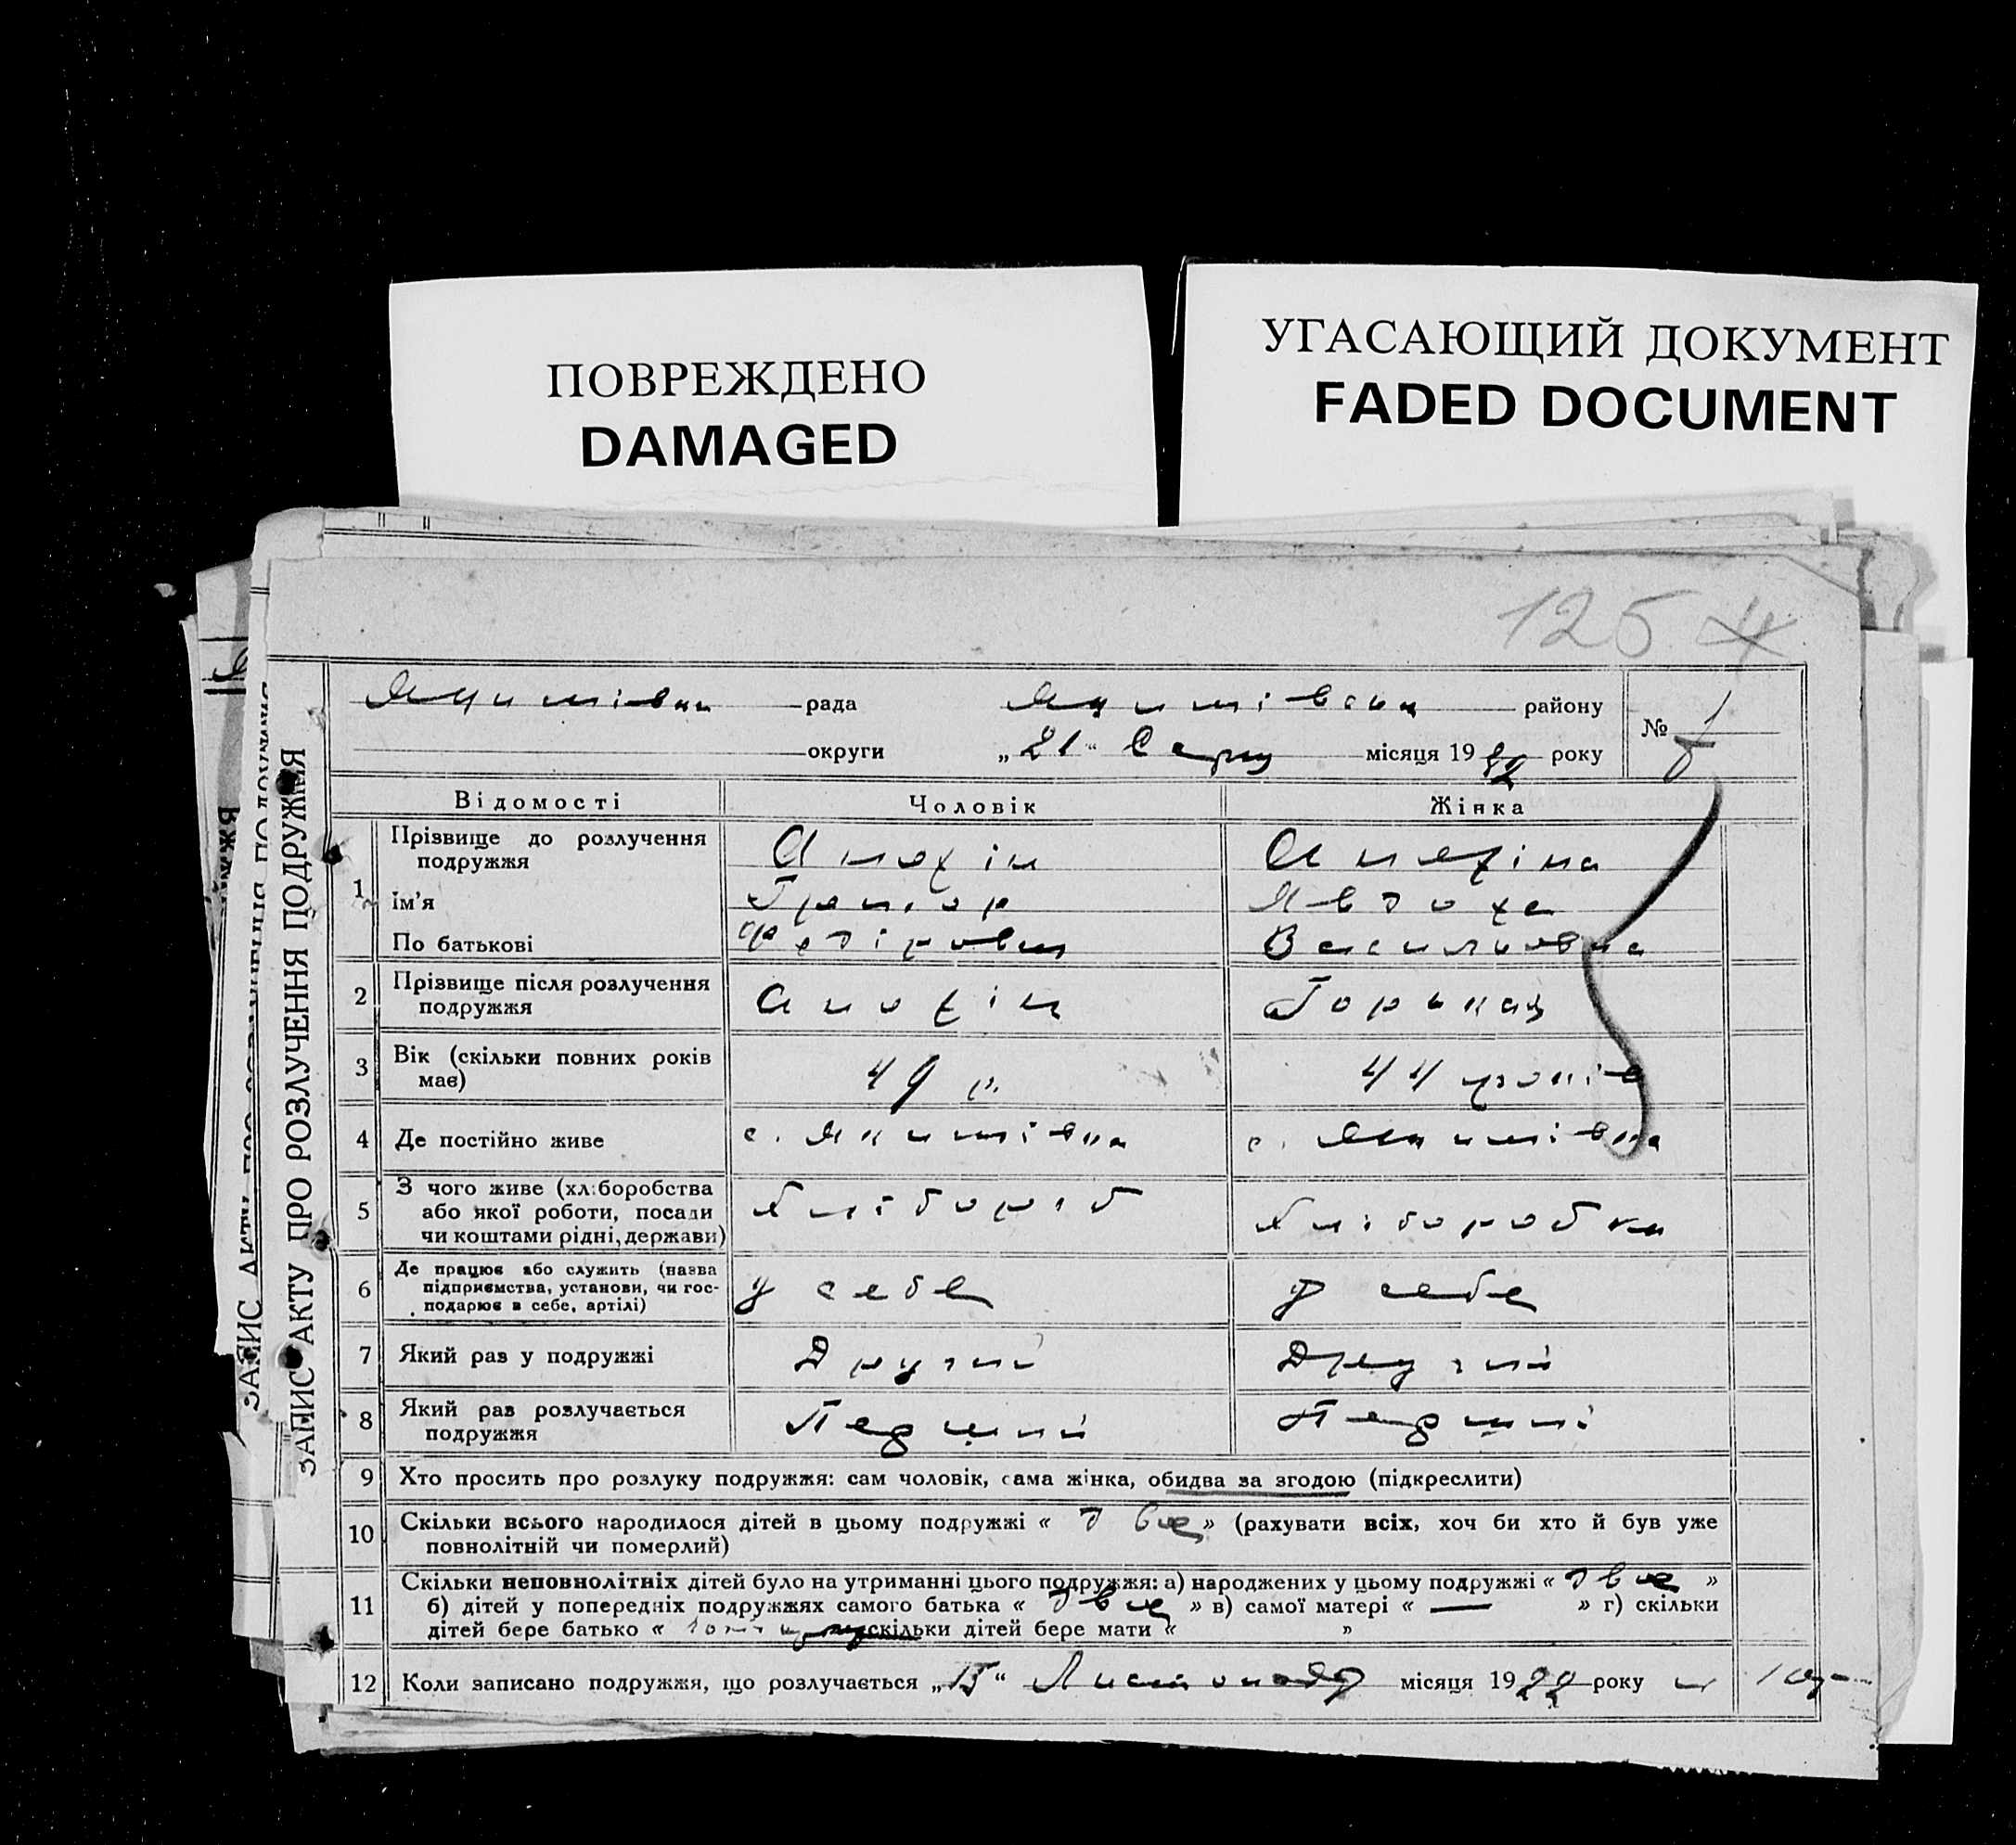 ПОВРЕЖДЕНО
DAMAGED
УГАСАЮЩИЙ ДОКУМЕНТ
FADED DOCUMENT
125
ЗАПИС АКТУ ПРО РОЗЛУЧЕННЯ ПОДРУЖЖЯ
рада району
№
округи „21“ Серпн місяця 19 року
Відомості Чоловік Жінка
1 Прізвище до розлучення подружжя Анохін Анохіна
Ім'я Григор Явдоха
По батькові Федірович Васильовна
2 Прізвище після розлучення подружжя Анохін
3 Вік (скільки повних років має) 49 р. 44 років
4 Де постійно живе с. Якимівка с. Якимівка
5 З чого живе (хліборобства або якої роботи, посади чи коштами рідні, держави) Хлібороб Хлібороб
6 Де працює або служить (назва підприємства, установи, чи господарює в себе, артілі) у себе у себе
7 Який раз у подружжі Другий Другий
8 Який раз розлучається подружжя Перший Перший
9 Хто просить про розлуку подружжя: сам чоловік, сама жінка, обидва за згодою (підкреслити)
10 Скільки всього народилося дітей в цьому подружжі « двоє » (рахувати всіх, хоч би хто й був уже
повнолітній чи померлий)
11 Скільки неповнолітніх дітей було на утриманні цього подружжя: а) народжених у цьому подружжі « двоє »
б) дітей у попередніх подружжях самого батька « двоє » в) самої матері « — » г) скільки
дітей бере батько « скільки дітей бере мати « »
12 Коли записано подружжя, що розлучається „ “ Листопаду місяця 1922 року